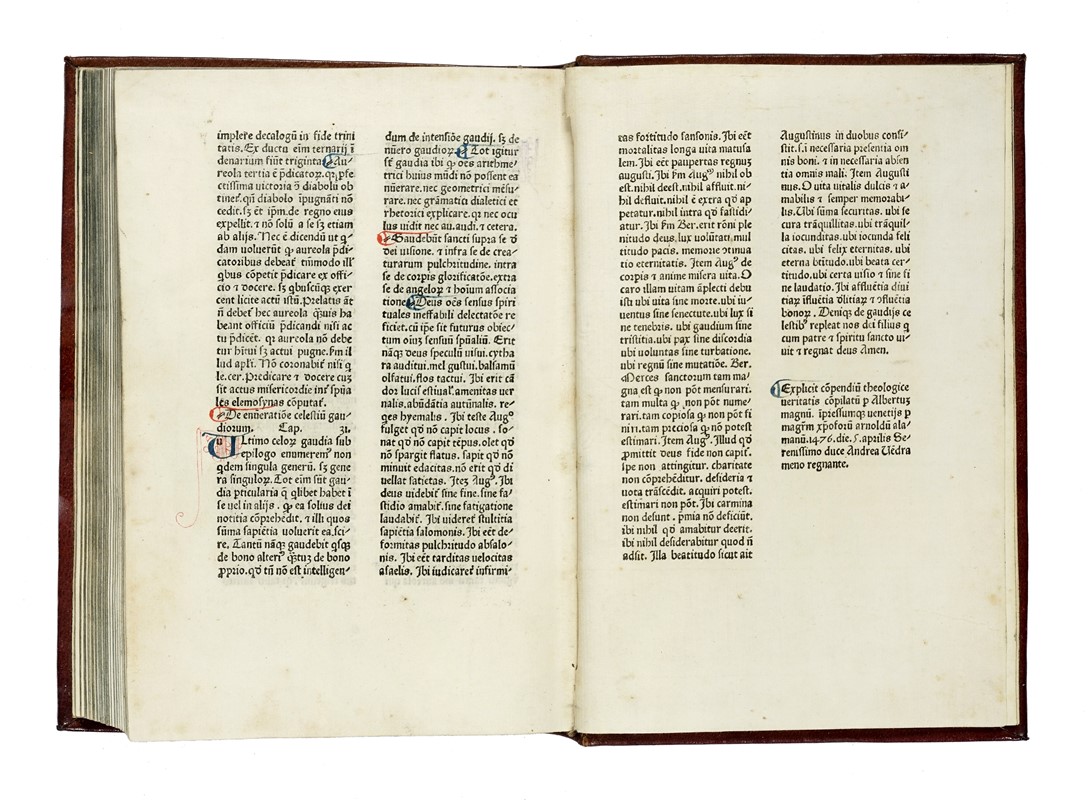 implere decalogū in fide trini
tatis. Ex ductu eīm ternarij ī
denarium fiūt triginta. Au⸗
reola tertia ē p̄dicatoꝝ. qꝛ ꝑfe
ctissima victoria ꝯ diabolū ob
tinet̄. qn̄ diabolo īpugnāti nō
cedit. sꝫ ēt ip̄m. de regno eius
expellit. ⁊ nō solū a se sꝫ etiam
ab alijs. Nec ē dicendū ut q̄⸗
dam voluerūt ꝙ aureola p̄di⸗
catoribus debeat̄ tūmodo ill'
qbus cōpetit p̄dicare ex offi⸗
cio ⁊ docere. sꝫ qbuscūqꝫ exer
cent licite actū istū. Prelatis āt
n̄ debet̄ hec aureola q̄uis ha
beant officiū p̄dicandi nisi ac
tu p̄dicēt. qꝛ aureola nō debe
tur hītui sꝫ actui pugne. ẜm il
lud apl̄i. Nō coronabit̄ nisi q
le. cer. Predicare ⁊ docere cuꝫ
sit actus misericordie int̄ sp̄ūa
les elemosynas cōputat̄.
De enūeratiōe celestiū gau⸗
diorum. Cap. 31.
Ultimo celoꝝ gaudia sub
epilogo enumerem⁹ non
qdem singula generū. sꝫ gene
ra singuloꝝ. Tot eīm sūt gau⸗
dia ꝑticularia q̄ qlibet habet ī
se uel in alijs. ꝙ ea solius dei
notitia cōprehēdit. ⁊ illi quos
sūma sapiētia voluerit ea. sci⸗
re. Tantū nāqꝫ gaudebit q̄sqꝫ
de bono alteri⁹ q̄stuꝫ de bono
ꝓprio. qd̓ tn̄ nō est intelligen⸗
dum de intensiōe gaudij. sꝫ de
nūero gaudioꝝ. Tot igitur
st̄ gaudia ibi ꝙ oēs arithme⸗
trici huius mūdi nō possent ea
nūerare. nec geometrici mēsu⸗
rare. nec grāmatici dialetici et
rhetorici explicare. qꝛ nec ocu
lus uidit nec au. audi. ⁊ cetera.
Gaudebūt sancti supra se ꝺ
dei uisione. ⁊ infra se de crea⸗
turarum pulchritudine. intra
se de corꝑis glorificatōe. extra
se de angeloꝝ ⁊ hoīum associa
tione. Deus oēs sensus spiri
tuales ineffabili delectatōe re
ficiet. cū ip̄e sit futurus obiec⸗
tum oīuꝫ sensuū sp̄ūaliū. Erit
nāqꝫ deus speculū uisui. cytha
ra auditui. mel gustui. balsamū
olfatui. flos tactui. Ibi erit cā
dor lucis estiual̓. amenitas uer
nalis. abūdātia autūnalis. re⸗
q̄es hyemalis. Ibi teste Aug⁹
fulget qd̓ nō capit locus. so⸗
nat qd̓ nō capit tēpus. olet qd̓
nō spargit flatus. sapit qd̓ nō
minuit edacitas. nō erit qd̓ di
uellat satietas. Iteꝫ Aug⁹. Ibi
deus uidebit̄ sine fine. sine fa⸗
stidio amabit̄. sine fatigatione
laudabit̄. Ibi uideret̄ stultitia
sapiētia salomonis. Ibi eēt de⸗
formitas pulchritudo absalo⸗
nis. Ibi eēt tarditas velocitas
asaelis. Ibi iudicaret̄ infirmi⸗
tas fortitudo sansonis. Ibi eēt
mortalitas longa vita matusa
lem. Ibi eēt paupertas regnuꝫ
augusti. Ibi ẜm Aug⁹ nihil ob
est. nihil deest. nihil affluit. ni⸗
hil defluit. nihil ē extra qd̓ ap
petatur. nihil intra qd̓ fastidi⸗
atur. Ibi ẜm Ber. erit rōni ple
nitudo deus. lux volūtati. mul
titudo pacis. memorie ꝯtinua
tio eternitatis. Item Aug⁹. de
corꝑis ⁊ anime misera vita. O
caro illam uitam āplecti debu
isti ubi vita sine morte. ubi iu⸗
uentus sine senectute. ubi lux si
ne tenebris. ubi gaudium sine
tristitia. ubi pax sine discordia
ubi voluntas sine turbatione.
ubi regnū sine mutatiōe. Ber.
Merces sanctorum tam ma⸗
gna est ꝙ non pōt mensurari.
tam multa ꝙ non pōt nume⸗
rari. tam copiosa ꝙ non pōt fi
niri. tam preciosa ꝙ non potest
estimari. Item Aug⁹. Illud qd̓
ꝓmittit deus fide non capit̄.
spe non attingitur. charitate
non cōprehēditur. desideria ⁊
uota trāscēdit. acquiri potest.
estimari non pōt. Ibi carmina
non desunt. p̄mia nō deficiūt.
ibi nihil qd̓ amabitur deerit.
ibi nihil desiderabitur quod n̄
adsit. Illa beatitudo sicut ait
Augustinus in duobus consi⸗
stit. s. i necessaria presentia om
nis boni. ⁊ in necessaria absen
tia omnis mali. Item Augusti
nus. O vita vitalis dulcis ⁊ a⸗
mabilis ⁊ semper memorabi⸗
lis. Ubi sūma securitas. ubi se
cura trāquillitas. ubi trāquil⸗
la iocunditas. ubi iocunda feli
citas. ubi felix eternitas. ubi
eterna btitudo. ubi beata cer⸗
titudo. ubi certa uisio ⁊ sine fi
ne laudatio. Ibi affluētia diui
tiaꝝ īfluētia dlitiaꝝ ⁊ ꝯfluētia
bonoꝝ. Deniqꝫ de gaudijs ce
lestibꝰ repleat nos dei filius q
cum patre ⁊ spiritu sancto ui⸗
uit ⁊ regnat deus Amen.
Explicit cōpendiū theologice
ueritatis cōpilatū p Albertuꝫ
magnū. īpressumqꝫ uenetijs p
magr̄m xp̄oforū arnoldū ala⸗
manū. 1476. die. 5. aprilis Se⸗
renissimo duce Andrea Uēdra
meno regnante.